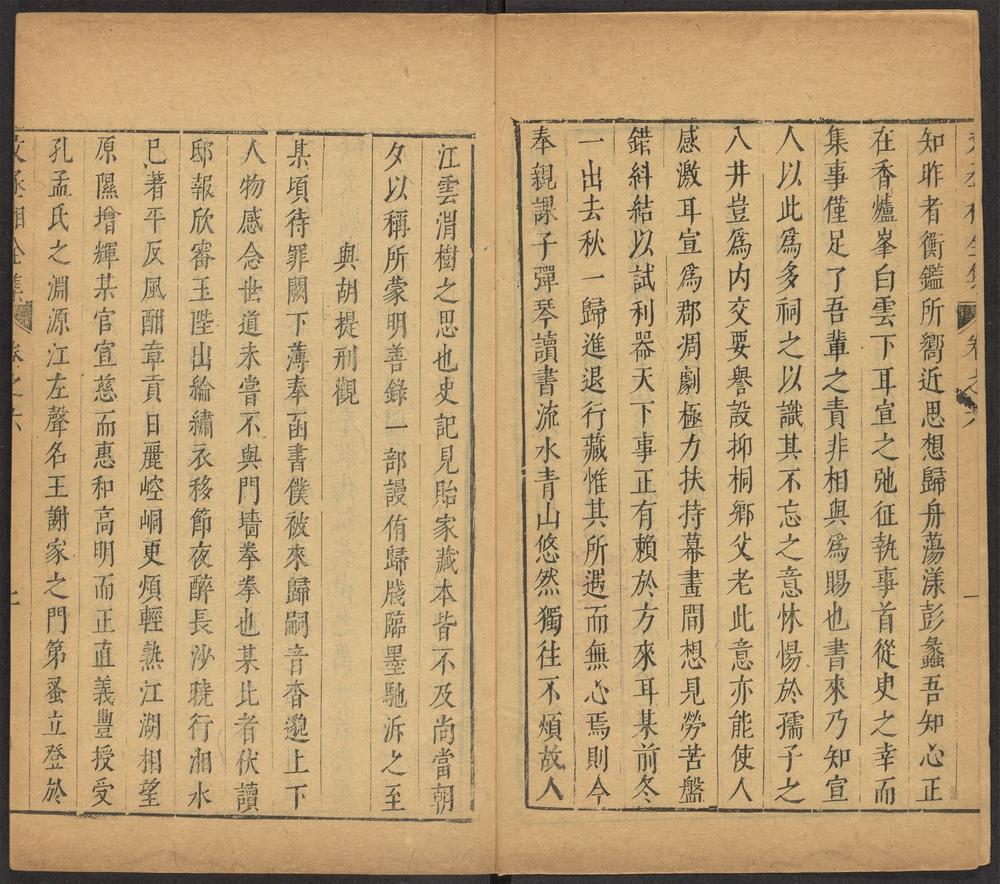 知昨者衡鑑所嚮近思想歸舟蕩漾彭蠡吾知心正
在香爐峯白雲下耳宣之弛征執事首從臾之幸而
集事僅足了吾輩之責非相與爲賜也書來乃知宣
人以此爲多祠之以識其不忘之意怵惕於孺子之
入井豈爲内交要譽設抑桐鄉父老此意亦能使人
感激耳宣爲郡凋劇極力扶持幕畫間想見勞苦盤
錯紏結以試利器天下事正有賴於方來耳某前冬
一出去秋一歸進退行藏惟其所遇而無心焉則今
奉親課子彈琴讀書流水青山悠然獨往不煩故人
江雲渭樹之思也史記見貽家藏本皆不及尚當朝
夕以稱所蒙明善錄一部謾侑歸牋臨墨馳泝之至
與胡提刑觀
某頃待罪闕下薄奉函書僕被來歸嗣音杳邈上下
人物感念世道未嘗不與門墻拳拳也某比者伏讀
邸報欣審玉陛出綸繡衣移節夜醉長沙曉行湘水
已著平反風酣章貢日麗崆峒更煩輕熟江湖相望
原隰增輝某官宣慈而惠和高明而正直義豐授受
孔孟氏之淵源江左聲名王謝家之門第蚤立登於
文丞相全集 卷之六 二